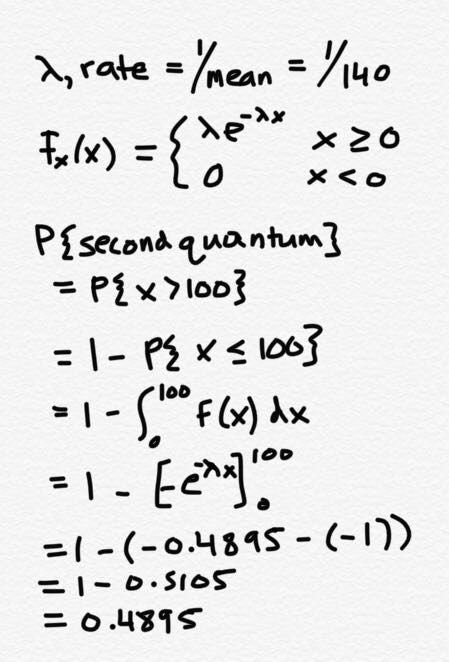 λ, rate = 1/mean = 1/140
fₓ(x) = { λe^{-λx} x ≥ 0
0 x < 0
P{second quantum}
= P{x > 100}
= 1 - P{x ≤ 100}
= 1 - ∫₀¹⁰⁰ f(x) dx
= 1 - [-e^{-λx}]₀¹⁰⁰
= 1 - (-0.4895 - (-1))
= 1 - 0.5105
= 0.4895